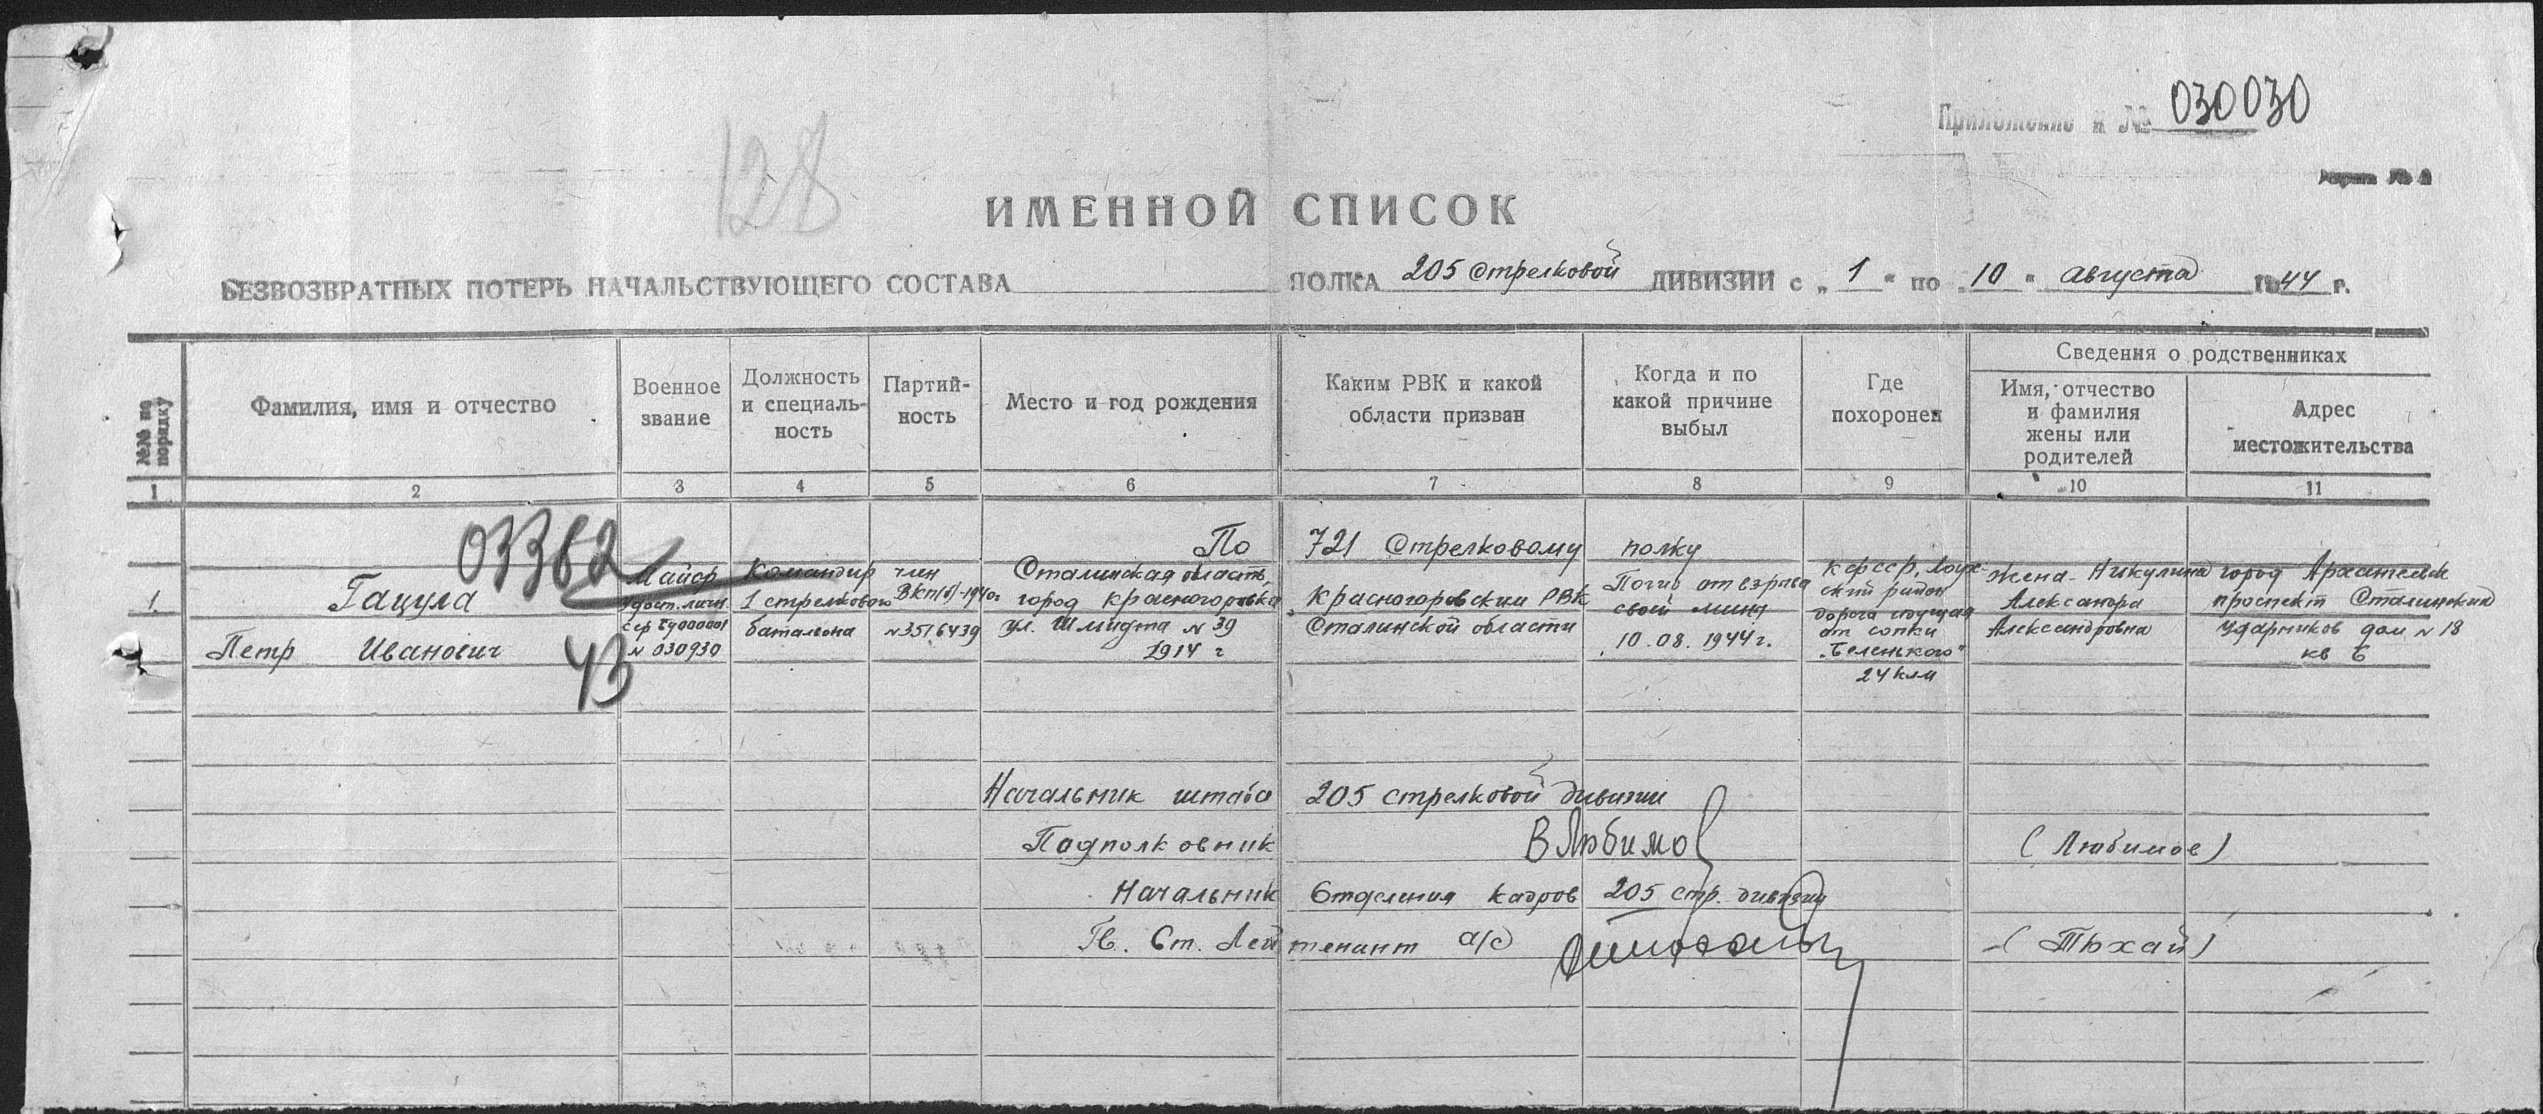 Приложение к № 030030
Форма № 2
128
ИМЕННОЙ СПИСОК
БЕЗВОЗВРАТНЫХ ПОТЕРЬ НАЧАЛЬСТВУЮЩЕГО СОСТАВА ПОЛКА 205 стрелковой ДИВИЗИИ с „ 1 “ по „ 10 “ августа 1944 г.
№№ по порядку
Фамилия, имя и отчество
Военное
звание
Должность
и специаль-
ность
Партий-
ность
Место и год рождения
Каким РВК и какой
области призван
Когда и по
какой причине
выбыл
Где
похоронен
Сведения о родственниках
Имя, отчество
и фамилия
жены или
родителей
Адрес
местожительства
1 2 3 4 5 6 7 8 9 10 11
03362
По 721 стрелковому полку
1.
Гацула
Петр Иванович
43
Майор
удост. личн.
сер
№ 030930
Командир
1 стрелкового
батальона
член
ВКП(б)-1940г
№3516439
Сталинская область,
город Красногоровка
ул. Шмидта № 39
1914 г
Красногоровским РВК
Сталинской области
Погиб от взрыва
своей мины
10.08.1944г.
КФССР, Лоух-
ский район
дорога идущая
от сопки
„Беленького"
24 клм
Жена - Никулина
Александра
Александровна
город Архангельск
проспект Сталинских
ударников дом № 18
кв 6
Начальник штаба 205 стрелковой дивизии
Подполковник ВЛюбимов (Любимов)
Начальник Отделения кадров 205 стр. дивизии
Гв. Ст. Лейтенант а/с (Тюхай)